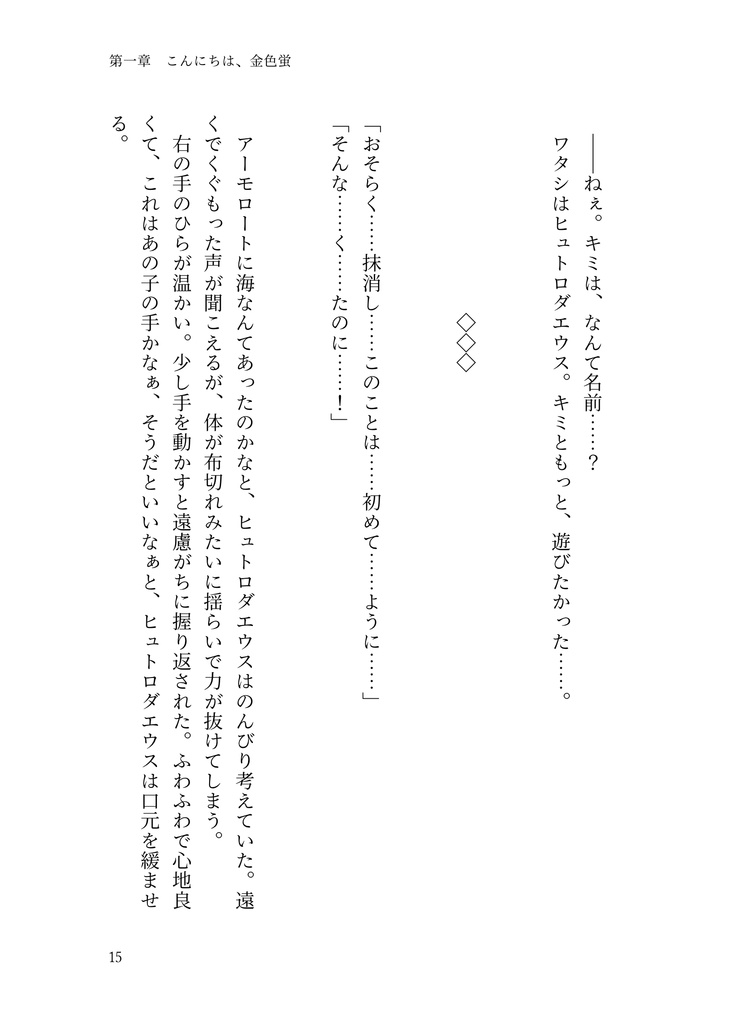 第一章　こんにちは、金色蛍
――ねぇ。キミは、なんて名前……？
ワタシはヒュトロダエウス。キミともっと、遊びたかった……。
◇◇◇
「おそらく……抹消し……このことは……初めて……ように……」
「そんな……く……たのに……！」
アーモロートに海なんてあったのかなと、ヒュトロダエウスはのんびり考えていた。遠
くでくぐもった声が聞こえるが、体が布切れみたいに揺らいで力が抜けてしまう。
右の手のひらが温かい。少し手を動かすと遠慮がちに握り返された。ふわふわで心地良
くて、これはあの子の手かなぁ、そうだといいなぁと、ヒュトロダエウスは口元を緩ませ
る。
15